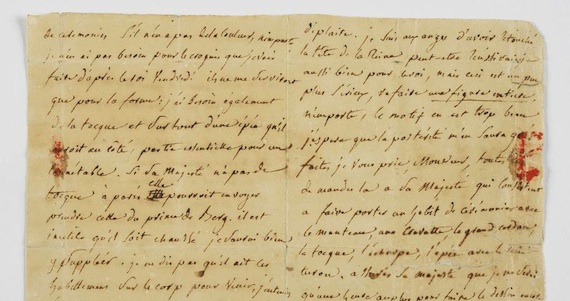 de ceremonies s'il n'en a pas de la couleur, n'importe
je n'en ai pas besoin pour le croquis que je vais
faire d'après le Roi Vendredi il ne me servirone
que pour la forme; j'ai besoin également
de la tocque et surtout d'une épée qu'il
soit au côté, porte
Si Sa Majesté n'a pas de
tocque à paris elle pourroit envoyer
prendre celle du prince de Berg. il est
inutile qu'il soit chaussé je saurai bien
y suppléer. je ne dis pas qu'il ait les
habillemens sur le corp pour venir, j'entens
d'plaite. je suis aux anges d'avoir retouché
la tête de la Reine peut etre réussirai-je
aussi bien pour le roi, mais ceci est un peu
plus sérieux, sa faire une figure entiere
n'importe, le motif en est trop beau
j'espere que la postérité m'en saura
faites, je vous prie, Monsieur, toute
a Sa Majesté qui
a faire porter un habit de cérémonies avec
le manteau, une cravatte le grand cordon,
la tocque, l'echarpe, l'épée avec le
Sa majesté que je ne serai
qu'une heure au plus pour faire le